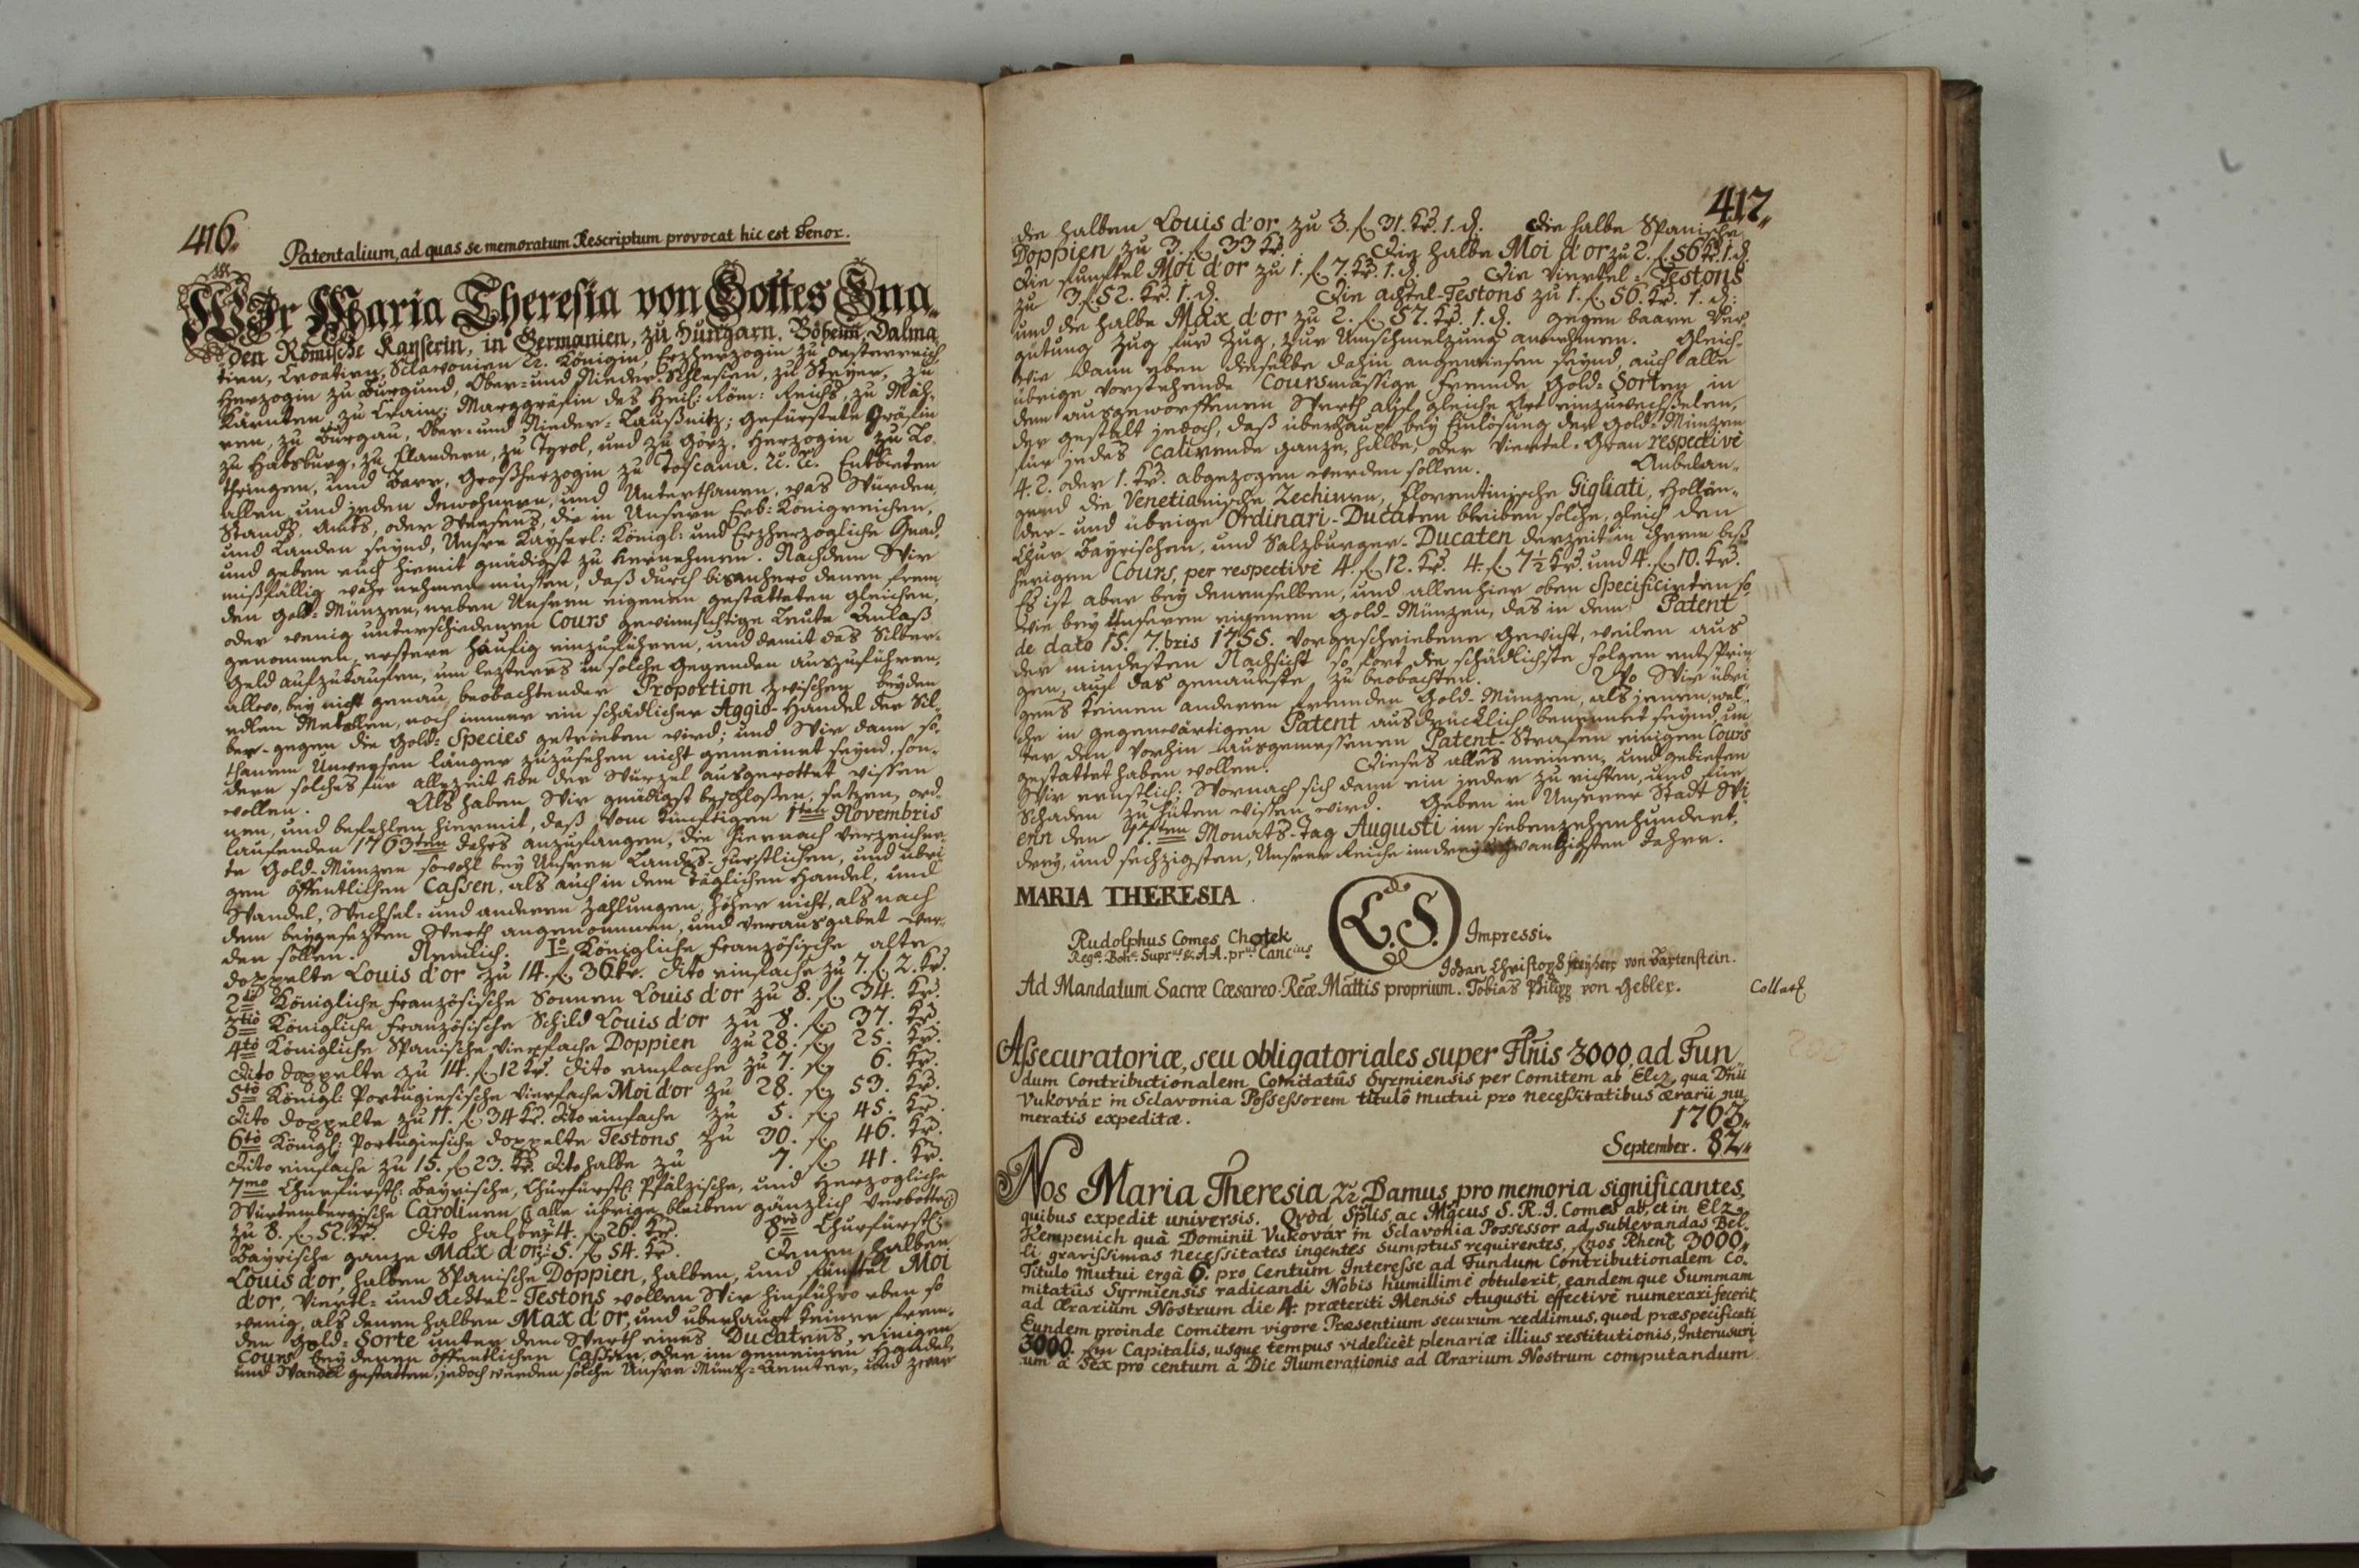 416.
Patentalium, ad quas se memoratum Rescriptum provocat hic est Tenor.
WIr Maria Theresia von Gottes Gna-
den Römische Kayserin, in Germanien, zu Hungarn, Böheim, Dalma
tien, Croatien, Sclavonien &c. Königin, Erzherzogin zu Oesterreich
Herzogin zu Burgund, Ober- und Nieder-Schlesien, zu Steyer, zu
Kärnten, zu Crain; Marggräfin des Heil: Röm: Reichs, zu Mäh-
ren, zu Burgau, Ober- und Nieder-Laußnitz; Gefürstete Gräfin
zu Habsburg, zu Flandern, zu Tyrol, und zu Görz, Herzogin zu Lo-
thringen, und Barr, Großherzogin zu Toscana. &c. &c. Entbieten
allen, und jeden Inwohnern, und Unterthanen, was Würden,
Stands, Amts, oder Weesens, die in Unseren Erb-Königreichen,
und Landen seynd, Unsre Kayserl: Königl: und Erzherzogliche Gnad,
und geben euch hiemit gnädigst zu vernehmen. Nachdem Wir
mißfällig wahr nehmen müssen, daß durch bis anhero denen frem
den Gold-Münzen, neben Unseren eigenen gestatteten gleichen,
oder wenig unterschiedenen Cours gewinnsichtige Leute Anlaß
genommen, erstere häufig einzuführen, und damit das Silber-
Geld aufzukaufen, um lezteres in solche Gegenden auszuführen,
allwo, bey nicht genau beobachtender Proportion zwischen beyden
edlen Metallen, noch immer ein schädlicher Aggio-Handel der Sil-
ber- gegen die Gold-Species getrieben wird; und Wir dann so-
thanem Unweesen länger zuzusehen nicht gemeinet seynd, son-
dern solches für allezeit von der Wurzel ausgerottet wissen
wollen. Als haben Wir gnädigst beschloßen, setzen, ord-
nen, und befehlen hiermit, daß vom künftigen 1ten Novembris
laufenden 1763ten Jahrs anzufangen, die hiernach verzeichne-
te Gold-Münzen sowohl bey Unseren Landes-Fürstlichen, und übri
gen öffentlichen Cassen, als auch in dem täglichen Handel, und
Wandel, Wechsel- und anderen Zahlungen, höher nicht, als nach
dem beygesezten Werth angenommen, und verausgabet wer-
den sollen. Nemlich. Io Königliche Französische alte
doppelte Louis d'or zu 14. f. 36 kr. dito einfache zu 7. f. 2. kr.
2do Königliche Französische Sonnen Louis d'or zu 8. f. 34. kr.
3tio Königliche Französische Schild Louis d'or zu 8. f. 37. kr.
4to Königliche Spanische vierfache Doppien zu 28. f. 25. kr.
dito doppelte zu 14. f. 12 kr. dito einfache zu 7. f. 6. kr.
5to Königl: Portugiesische vierfache Moi d'or zu 28. f. 53. kr.
dito doppelte zu 11. f. 34 kr. dito einfache zu 5. f. 45. kr.
6to Königl: Portugiesiche doppelte Testons zu 30. f. 46. kr.
dito einfache zu 15. f. 23. kr. dito halbe zu 7. f. 41. kr.
7mo Churfürstl: Bayrische, Churfürstl: Pfälzische, und Herzogliche
Würtembergische Carolinen (alle übrige bleiben gänzlich verbotten)
zu 8. f. 52. kr. dito halbe zu 4. f. 26. kr. 8vo Churfürstl:
Bayrische ganze Max d'or zu 5. f. 54. kr. Denen halben
Louis d'or, halben Spanische Doppien, halben, und fünftel Moi
d'or, Viertl- und Achtel-Testons wollen Wir hinführo eben so
wenig, als denen halben Max d'or, und überhaupt keiner frem-
den Gold-Sorte unter dem Werth eines Ducatens, einigen
Cours bey denen öffentlichen Cassen, oder im gemeinen Handel,
und Wandel gestatten, jedoch werden solche Unsere Münz-Aemter, und zwar
417.
die halben Louis d'or zu 3. f. 31. kr. 1. d. die halbe Spanische
Doppien zu 3. f. 33 kr. Die halbe Moi d'or zu 2. f. 56 kr. 1. d.
die fünftel Moi d'or zu 1. f. 7. kr. 1. d. Die Viertel-Testons
zu 3. f. 52. kr. 1. d. Die achtel-Testons zu 1. f. 56. kr. 1. d:
und die halbe Max d'or zu 2. f. 57. kr. 1. d. gegen baare Ver-
gütung Zug für Zug, zur Umschmelzung annehmen. Gleich-
wie dann eben dieselbe dahin angewiesen seynd, auch alle
übrige vorstehende Coursmässige fremde Gold-Sorten in
dem ausgeworffenen Werth auf gleiche Art einzuwechßelen,
der gestalt jedoch, daß überhaupt bey Einlösung der Gold-Münzen
für jedes calirende ganze, halbe, oder Viertel-Gran respectivè
4. 2. oder 1. kr. abgezogen werden sollen. Anbelan-
gend die Venetianische Zechinen, Florentinische Gigliati, Hollän-
der- und übrige Ordinari-Ducaten bleiben solche, gleich den
Chur Bayrischen, und Salzburger-Ducaten derzeit in ihrem biß
herigen Cours, per respectivè 4. f. 12. kr. 4. f. 7½ kr. und 4. f. 10. kr.
Es ist aber bey denenselben, und allen hier oben Specificirten so
wie bey Unseren eigenen Gold-Münzen, das in dem Patent
de dato 15. 7.bris 1755. vorgeschriebene Gewicht, weilen aus
der mindesten Nachsicht so fort die schädlichste Folgen entsprin
gen, auf das genaueste zu beobachten. Wo Wir übri
gens keinen anderen fremden Gold-Münzen, als jenen, wel-
che in gegenwärtigen Patent ausdrücklich benennet seynd, un
ter den vorhin ausgemessenen Patent-Strafen einigen Cours
gestattet haben wollen. Dieses alles meinen, und gebieten
Wir ernstlich; Wornach sich dann ein jeder zu richten, und für
Schaden zu hüten wissen wird. Geben in Unserer Stadt Wi
enn den 17.ten Monats-Tag Augusti im siebenzehenhundert,
drey, und sechzigsten, Unserer Reiche im drey und zwanzigsten Jahre.
MARIA THERESIA
L.S. Impressi.
Rudolphus Comes Chotek
Regæ. Bohæ. Suprus & AA. prus Cancius
Johan Christoph Freyherr von Bartenstein.
Ad Mandatum Sacræ Cæsareo-Reæ Mattis proprium. Tobias Philipp von Gebler.
Collat
Assecuratoriæ, seu obligatoriales super Flnis 3000, ad Fun
dum Contributionalem Comitatûs Syrmiensis per Comitem ab Elcz, qua Dnii
Vukovár in Sclavonia Possessorem titulô mutui pro necessitatibus ærarii nu
meratis expeditæ.
1763.
September. 82.
Nos Maria Theresia &c Damus pro memoria significantes,
quibus expedit universis. Qvòd Splis ac Mgcus S. R. I. Comes ab, et in Elz-
Kempenich quà Dominii Vukovár in Sclavonia Possessor ad sublevandas Bel-
li gravissimas necessitates ingentes sumptus requirentes, fnos Rhen 3000.
Titulo mutui ergà 6. pro Centum Interesse ad Fundum Contributionalem Co-
mitatûs Syrmiensis radicandi Nobis humillimè obtulerit, eandemque Summam
ad Ærarium Nostrum die 4. præteriti Mensis Augusti effectivè numerari fecerit,
Eundem proinde Comitem vigore Præsentium securum reddimus, quod præspecificati
3000. fln Capitalis, usque tempus videlicèt plenariæ illius restitutionis, Interusuri
um à Sex pro centum à Die Numerationis ad Ærarium Nostrum computandum